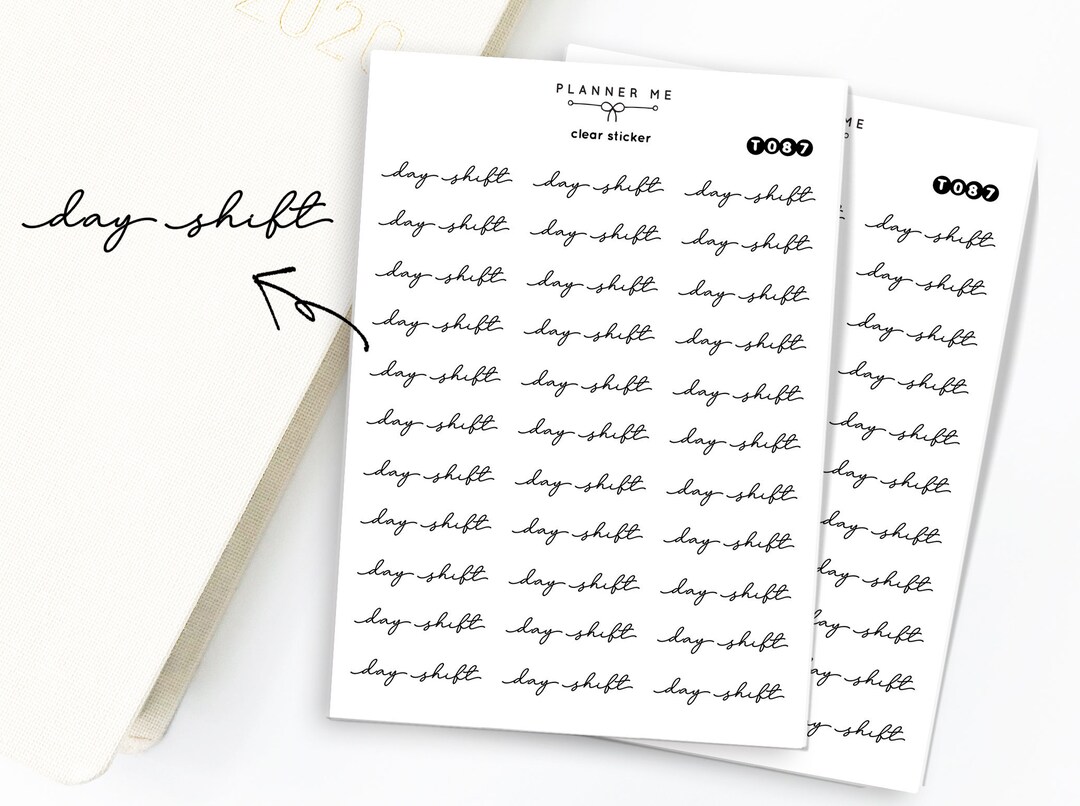 2020
PLANNER ME
clear sticker
T087
day shift
day shift day shift day shift
day shift day shift day shift
day shift day shift day shift
day shift day shift day shift
day shift day shift day shift
day shift day shift day shift
day shift day shift day shift
day shift day shift day shift
day shift day shift day shift
day shift day shift day shift
day shift day shift day shift
ME
T087
day shift
day shift
day shift
day shift
day shift
day shift
day shift
day shift
day shift
day shift
shift